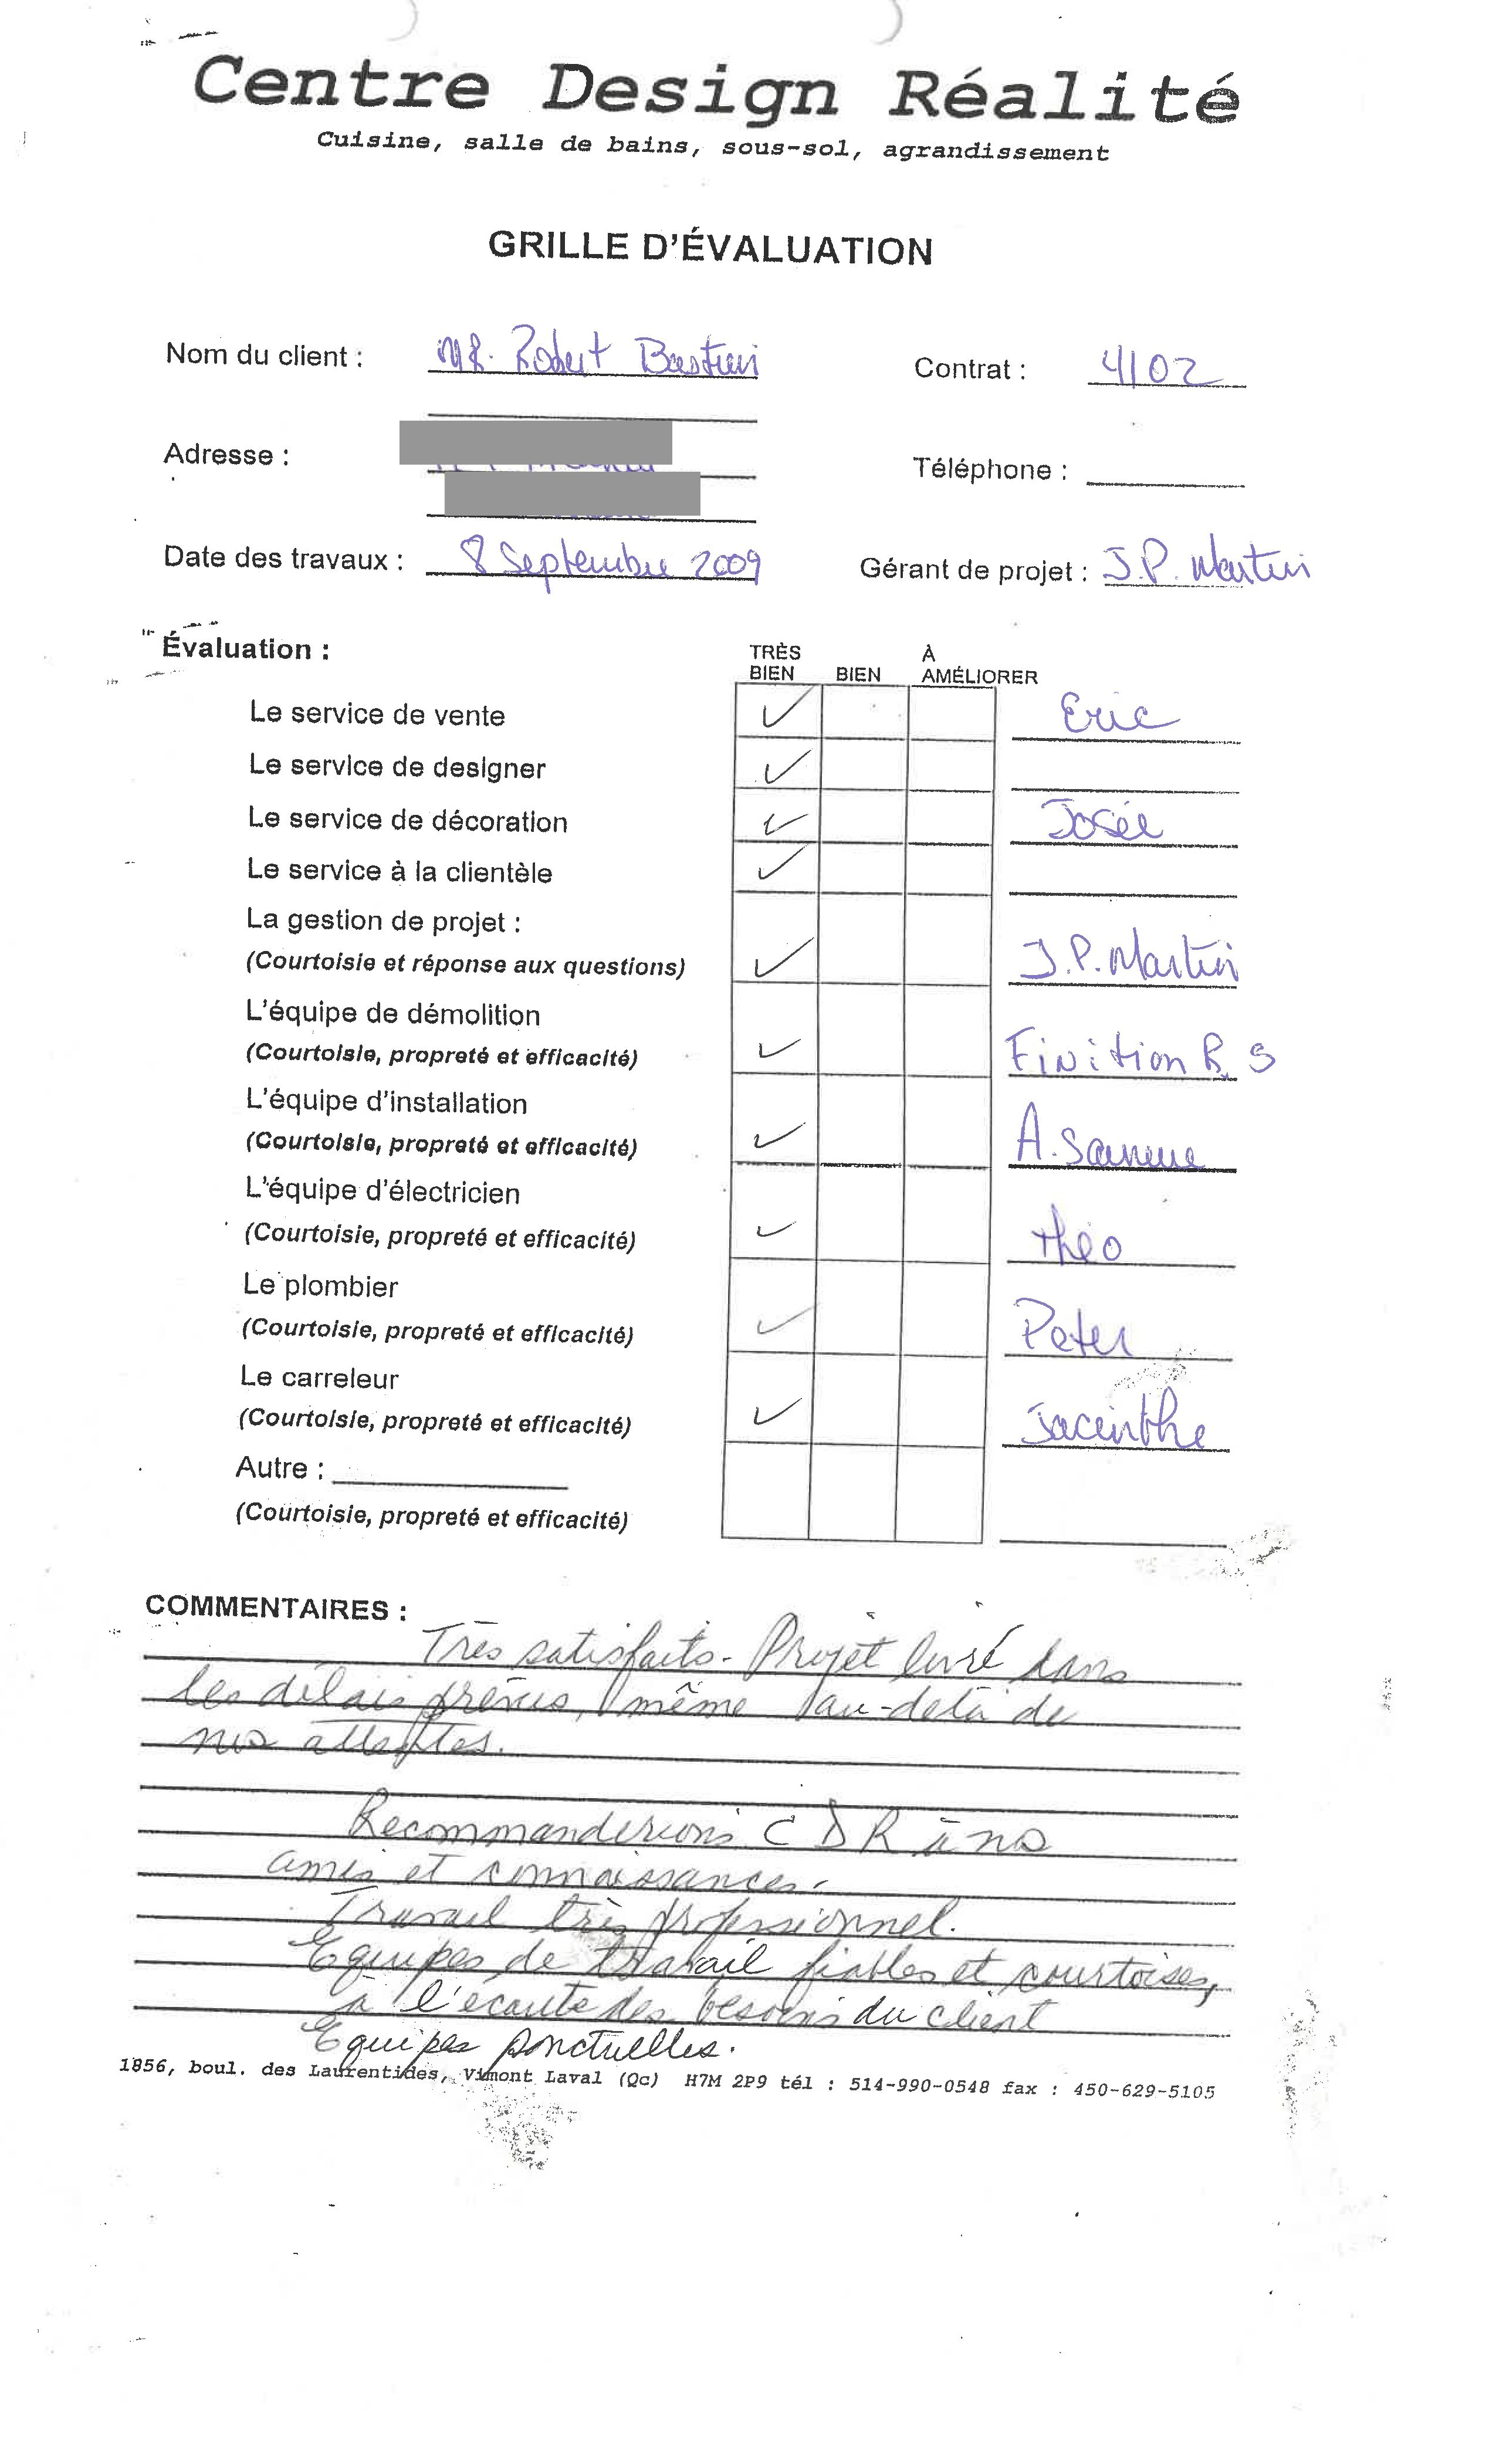 Centre Design Réalité
Cuisine, salle de bains, sous-sol, agrandissement
GRILLE D'ÉVALUATION
Nom du client : MR. Robert Bastien
Contrat : 4102
Adresse :
Téléphone :
Date des travaux : 8 Septembre 2009
Gérant de projet : J.P. Martin
Évaluation :
TRÈS BIEN BIEN À AMÉLIORER
Le service de vente ✓ Eric
Le service de designer ✓
Le service de décoration ✓ Josée
Le service à la clientèle ✓
La gestion de projet :
(Courtoisie et réponse aux questions) ✓ J.P. Martin
L'équipe de démolition
(Courtoisie, propreté et efficacité) ✓ Finition R.S
L'équipe d'installation
(Courtoisie, propreté et efficacité) ✓ A.
L'équipe d'électricien
(Courtoisie, propreté et efficacité) ✓ théo
Le plombier
(Courtoisie, propreté et efficacité) ✓ Peter
Le carreleur
(Courtoisie, propreté et efficacité) ✓ Jacinthe
Autre :
(Courtoisie, propreté et efficacité)
COMMENTAIRES :
Très satisfaits - Projet livré dans
les délais prévus, même au-delà de
nos attentes.
Recommanderions CDR à nos
amis et connaissances.
Travail très professionnel.
Equipes de travail fiables et courtoises,
à l'écoute des besoins du client
Equipes ponctuelles.
1856, boul. des Laurentides, Vimont Laval (Qc) H7M 2P9 tél : 514-990-0548 fax : 450-629-5105